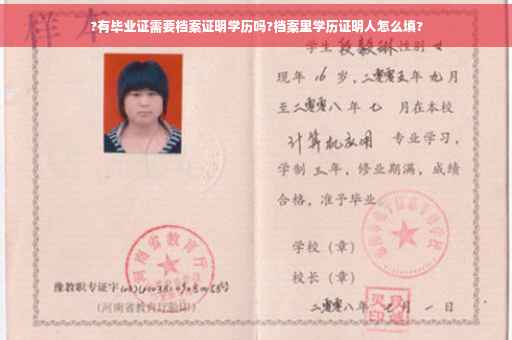 ?有毕业证需要档案证明学历吗?档案里学历证明人怎么填?
样本
学生段毅琳性别女
现年16岁，二零零五年九月
至二零零八年七月在本校
计算机应用 专业学习，
学制三年，修业期满，成绩
合格，准予毕业。
学校（章）
校长（章）
二零零八年 月一日
河南省教育厅
豫教职专证字
（河南省教育厅验印）